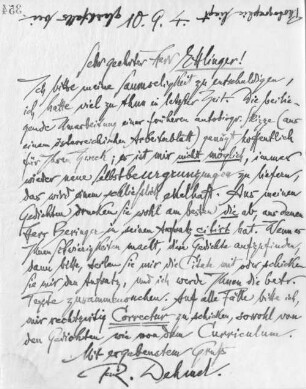 324
Photographie liegt
gleichfalls bei.
10. 9. 4.
Sehr geehrter Herr Ettlinger!
Ich bitte meine Saumseligkeit zu entschuldigen,
ich hatte viel zu thun in letzter Zeit. Die beilie-
gende Umarbeitung einer früheren autobiogr. Skizze (aus
einem österreichischen Arbeiterblatt) genügt hoffentlich
für Ihren Zweck; es ist mir nicht möglich, immer
wieder neue Selbstbeugungen zu liefern,
das wird einem schließlich ekelhaft. Aus meinen
Gedichten drucken Sie wohl am besten die ab, aus denen
Herr in seinem Aufsatz citirt hat. Wenn es
Ihnen Schwierigkeiten macht, die Gedichte aufzufinden,
dann bitte, teilen Sie mir die Titel mit oder schicken
Sie mir den Aufsatz, und ich werde Ihnen die betr.
Texte zusammensuchen. Auf alle Fälle bitte ich
mir rechtzeitig Correctur zu schicken, sowohl von
den Gedichten wie von dem Curriculum.
Mit ergebenstem Gruß
R. Dehmel.